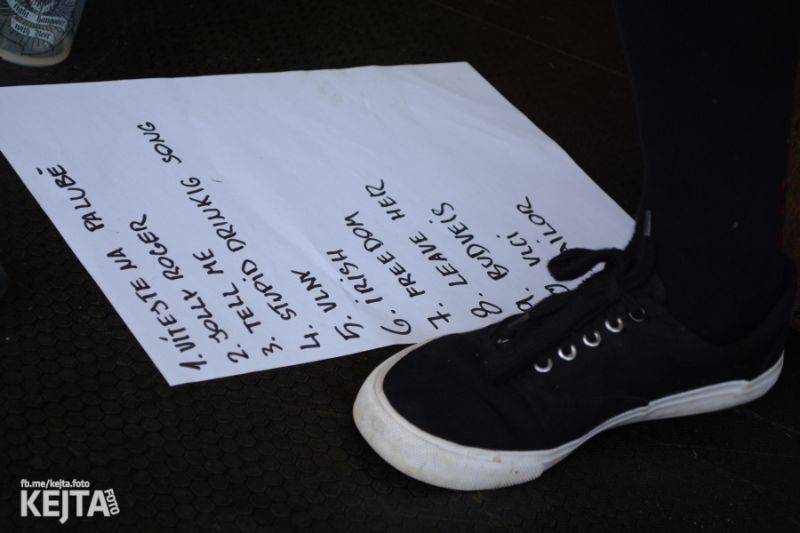 1. VÍTEJTE NA PALUBĚ
2. JOLLY ROGER
3. TELL ME
4. STUPID DRINKIG SONG
5. VLNY
6. IRISH
7. FREEDOM
8. LEAVE HER
9. BUDVEIS
VLCI
AILOR
fb.me/kejta.foto
KEJTA FOTO